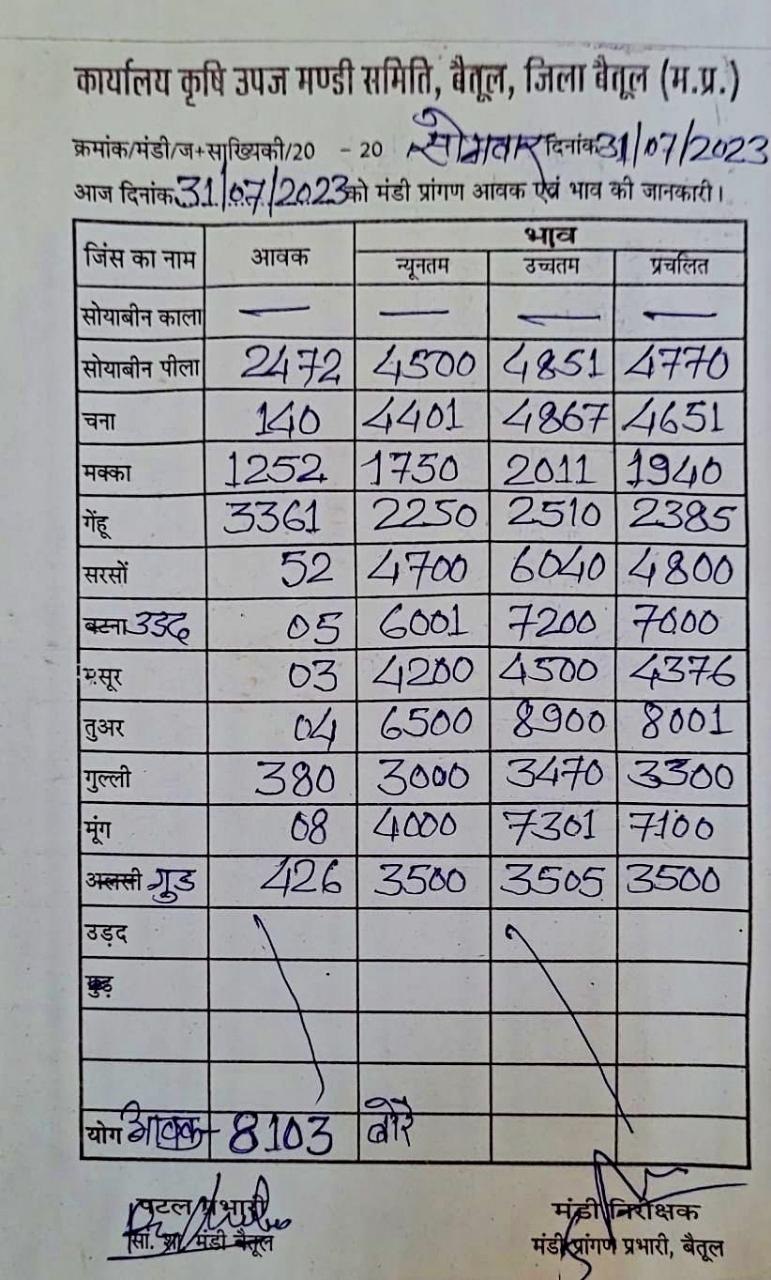 कार्यालय कृषि उपज मण्डी समिति, बैतूल, जिला बैतूल (म.प्र.)
क्रमांक/मंडी/ज+साख्यिकी/20 - 20 सोमवार दिनांक 31/07/2023
आज दिनांक 31/07/2023 को मंडी प्रांगण आवक एवं भाव की जानकारी।
जिंस का नाम आवक भाव
न्यूनतम उच्चतम प्रचलित
सोयाबीन काला — — — —
सोयाबीन पीला 2472 4500 4851 4770
चना 140 4401 4867 4651
मक्का 1252 1750 2011 1940
गेंहू 3361 2250 2510 2385
सरसों 52 4700 6040 4800
बटना उड़द 05 6001 7200 7000
मसूर 03 4200 4500 4376
तुअर 04 6500 8900 8001
गुल्ली 380 3000 3470 3300
मूंग 08 4000 7301 7100
अलसी गुड 426 3500 3505 3500
उड़द
गुड़
योग आवक - 8103 बोरे
पटल प्रभारी मंडी निरीक्षक
सां. शा. मंडी बैतूल मंडी प्रांगण प्रभारी, बैतूल